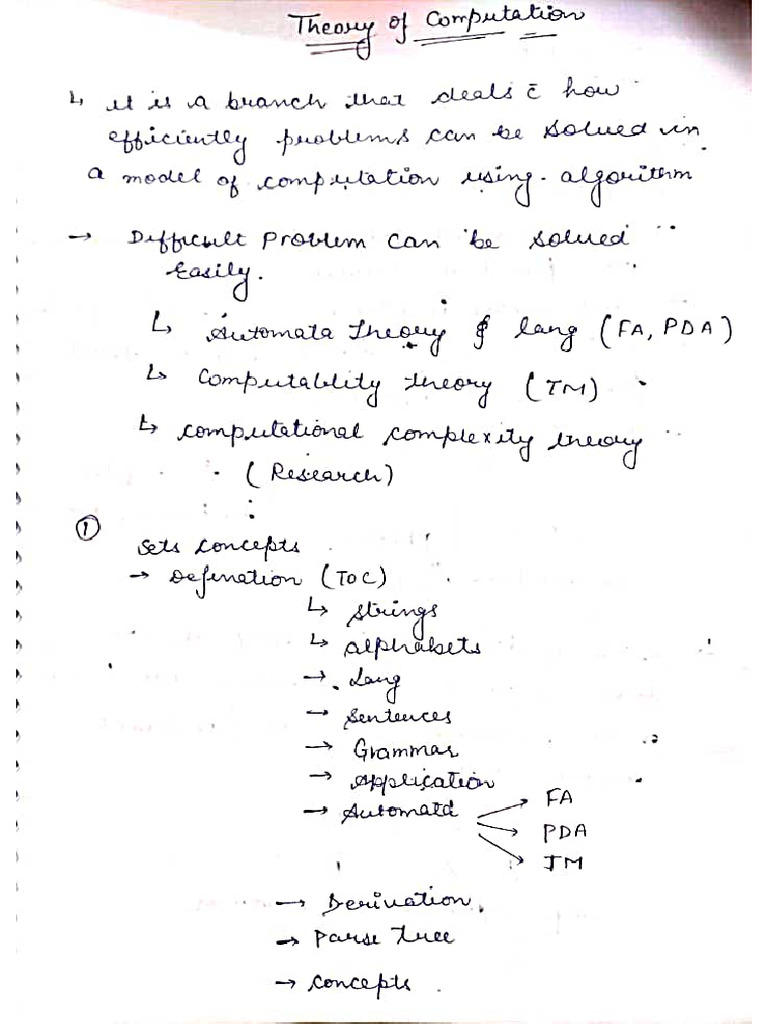 Theory of Computation
↳ it is a branch that deals c̄ how
efficiently problems can be solved in
a model of computation using. algorithm
→ Difficult Problem can be solved
Easily.
↳ Automata theory & lang (FA, PDA)
↳ Computablity theory (TM)
↳ computational complexity theory
(Research)
① Sets concepts
→ Defination (TOC)
↳ strings
↳ alphabets
→ Lang
→ Sentences
→ Grammar
→ Application
→ Automata → FA
→ PDA
→ TM
→ Derivation.
→ Parse tree
→ concepts.